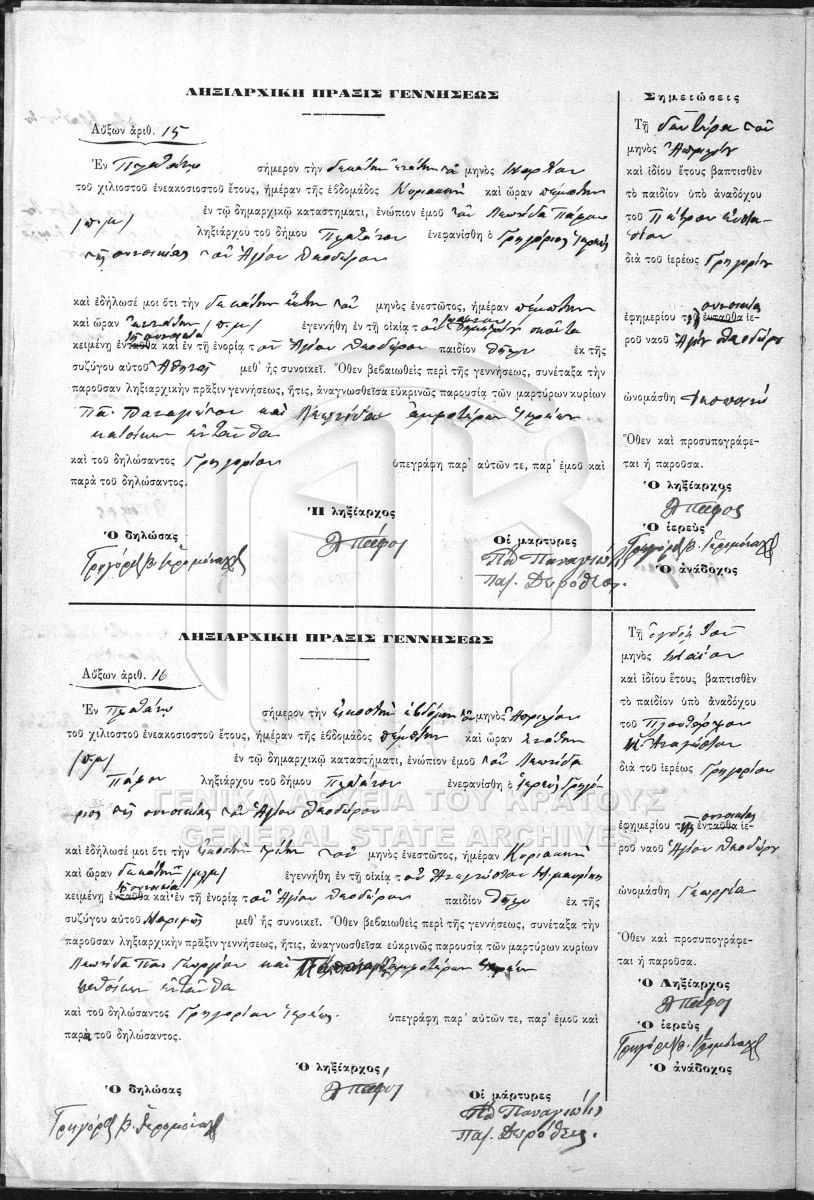 ΛΗΞΙΑΡΧΙΚΗ ΠΡΑΞΙΣ ΓΕΝΝΗΣΕΩΣ
Αὔξων ἀριθ. 15
Ἐν Πλατάνῳ σήμερον τὴν δεκάτην ἐνάτην τοῦ μηνὸς Μαρτίου
τοῦ χιλιοστοῦ ἐνεακοσιοστοῦ ἔτους, ἡμέραν τῆς ἑβδομάδος Κυριακὴν καὶ ὥραν πέμπτην
/π.μ/ ἐν τῷ δημαρχικῷ καταστήματι, ἐνώπιον ἐμοῦ τοῦ Λεωνίδα Πάφου
ληξιάρχου τοῦ δήμου Πλατάνου ἐνεφανίσθη ὁ Γρηγόριος Ἱερεὺς
τῆς συνοικίας τοῦ Ἁγίου Θεοδώρου
καὶ ἐδήλωσέ μοι ὅτι τὴν δεκάτην ἕκτην τοῦ μηνὸς ἐνεστῶτος, ἡμέραν πέμπτην
καὶ ὥραν /π.μ/ ἐγεννήθη ἐν τῇ οἰκίᾳ τοῦ Δημητρίου
κειμένῃ ἐνταῦθα συνοικία καὶ ἐν τῇ ἐνορίᾳ τοῦ Ἁγίου Θεοδώρου παιδίον θῆλυ ἐκ τῆς
συζύγου αὐτοῦ Ἀθηνᾶς μεθ᾽ ἧς συνοικεῖ. Ὅθεν βεβαιωθεὶς περὶ τῆς γεννήσεως, συνέταξα τὴν
παροῦσαν ληξιαρχικὴν πρᾶξιν γεννήσεως, ἥτις, ἀναγνωσθεῖσα εὐκρινῶς παρουσίᾳ τῶν μαρτύρων κυρίων
καὶ Λεωνίδα ἀμφοτέρων Ἱερέων
κατοίκων ἐνταῦθα
καὶ τοῦ δηλώσαντος Γρηγορίου ὑπεγράφη παρ᾽ αὐτῶν τε, παρ᾽ ἐμοῦ καὶ
παρὰ τοῦ δηλώσαντος.
Ὁ δηλώσας
Ἡ ληξίαρχος
Οἱ μάρτυρες
Λ Πάφος
Σημειώσεις
Τῇ δευτέρᾳ τοῦ
μηνὸς Ἀπριλίου
καὶ ἰδίου ἔτους βαπτισθὲν
τὸ παιδίον ὑπὸ ἀναδόχου
τοῦ Πέτρου
διὰ τοῦ ἱερέως Γρηγορίου
συνοικία
ἐφημερίου τοῦ ἐνταῦθα ἱε-
ροῦ ναοῦ Ἁγίου Θεοδώρου
ὠνομάσθη Δεσποινιώ
Ὅθεν καὶ προσυπογράφε-
ται ἡ παροῦσα.
Ὁ ληξίαρχος
Λ Πάφος
Ὁ ἱερεὺς
Ὁ ἀνάδοχος
ΛΗΞΙΑΡΧΙΚΗ ΠΡΑΞΙΣ ΓΕΝΝΗΣΕΩΣ
Αὔξων ἀριθ. 16
Ἐν Πλατάνῳ σήμερον τὴν εἰκοστὴν ἑβδόμην τοῦ μηνὸς Ἀπριλίου
τοῦ χιλιοστοῦ ἐνεακοσιοστοῦ ἔτους, ἡμέραν τῆς ἑβδομάδος πέμπτην καὶ ὥραν ἐνάτην
/π.μ/ ἐν τῷ δημαρχικῷ καταστήματι, ἐνώπιον ἐμοῦ τοῦ Λεωνίδα
Πάφου ληξιάρχου τοῦ δήμου Πλατάνου ἐνεφανίσθη ὁ Ἱερεὺς Γρηγό-
ριος τῆς συνοικίας τοῦ Ἁγίου Θεοδώρου
καὶ ἐδήλωσέ μοι ὅτι τὴν εἰκοστὴν τρίτην τοῦ μηνὸς ἐνεστῶτος, ἡμέραν Κυριακὴν
καὶ ὥραν δεκάτην /μ.μ/ ἐγεννήθη ἐν τῇ οἰκίᾳ τοῦ Ἀναγνώστου
κειμένῃ ἐνταῦθα συνοικία καὶ ἐν τῇ ἐνορίᾳ τοῦ Ἁγίου Θεοδώρου παιδίον θῆλυ ἐκ τῆς
συζύγου αὐτοῦ Μαριγῶς μεθ᾽ ἧς συνοικεῖ. Ὅθεν βεβαιωθεὶς περὶ τῆς γεννήσεως, συνέταξα τὴν
παροῦσαν ληξιαρχικὴν πρᾶξιν γεννήσεως, ἥτις, ἀναγνωσθεῖσα εὐκρινῶς παρουσίᾳ τῶν μαρτύρων κυρίων
Λεωνίδα Παπ Γεωργίου καὶ ἀμφοτέρων Ἱερέων
κατοίκων ἐνταῦθα
καὶ τοῦ δηλώσαντος Γρηγορίου Ἱερέως ὑπεγράφη παρ᾽ αὐτῶν τε, παρ᾽ ἐμοῦ καὶ
παρὰ τοῦ δηλώσαντος.
Ὁ δηλώσας
Ὁ ληξίαρχος
Οἱ μάρτυρες
Λ Πάφος
Τῇ ὀγδόῃ τοῦ
μηνὸς Μαΐου
καὶ ἰδίου ἔτους βαπτισθὲν
τὸ παιδίον ὑπὸ ἀναδόχου
τοῦ Πλουτάρχου
Ἀναγνώστου
διὰ τοῦ ἱερέως Γρηγορίου
συνοικίας
ἐφημερίου τῆς ἐνταῦθα ἱε-
ροῦ ναοῦ Ἁγίου Θεοδώρου
ὠνομάσθη Γεωργία
Ὅθεν καὶ προσυπογράφε-
ται ἡ παροῦσα.
Ὁ Ληξίαρχος
Λ Πάφος
Ὁ ἱερεὺς
Ὁ ἀνάδοχος
ΓΕΝΙΚΑ ΑΡΧΕΙΑ ΤΟΥ ΚΡΑΤΟΥΣ
GENERAL STATE ARCHIVES